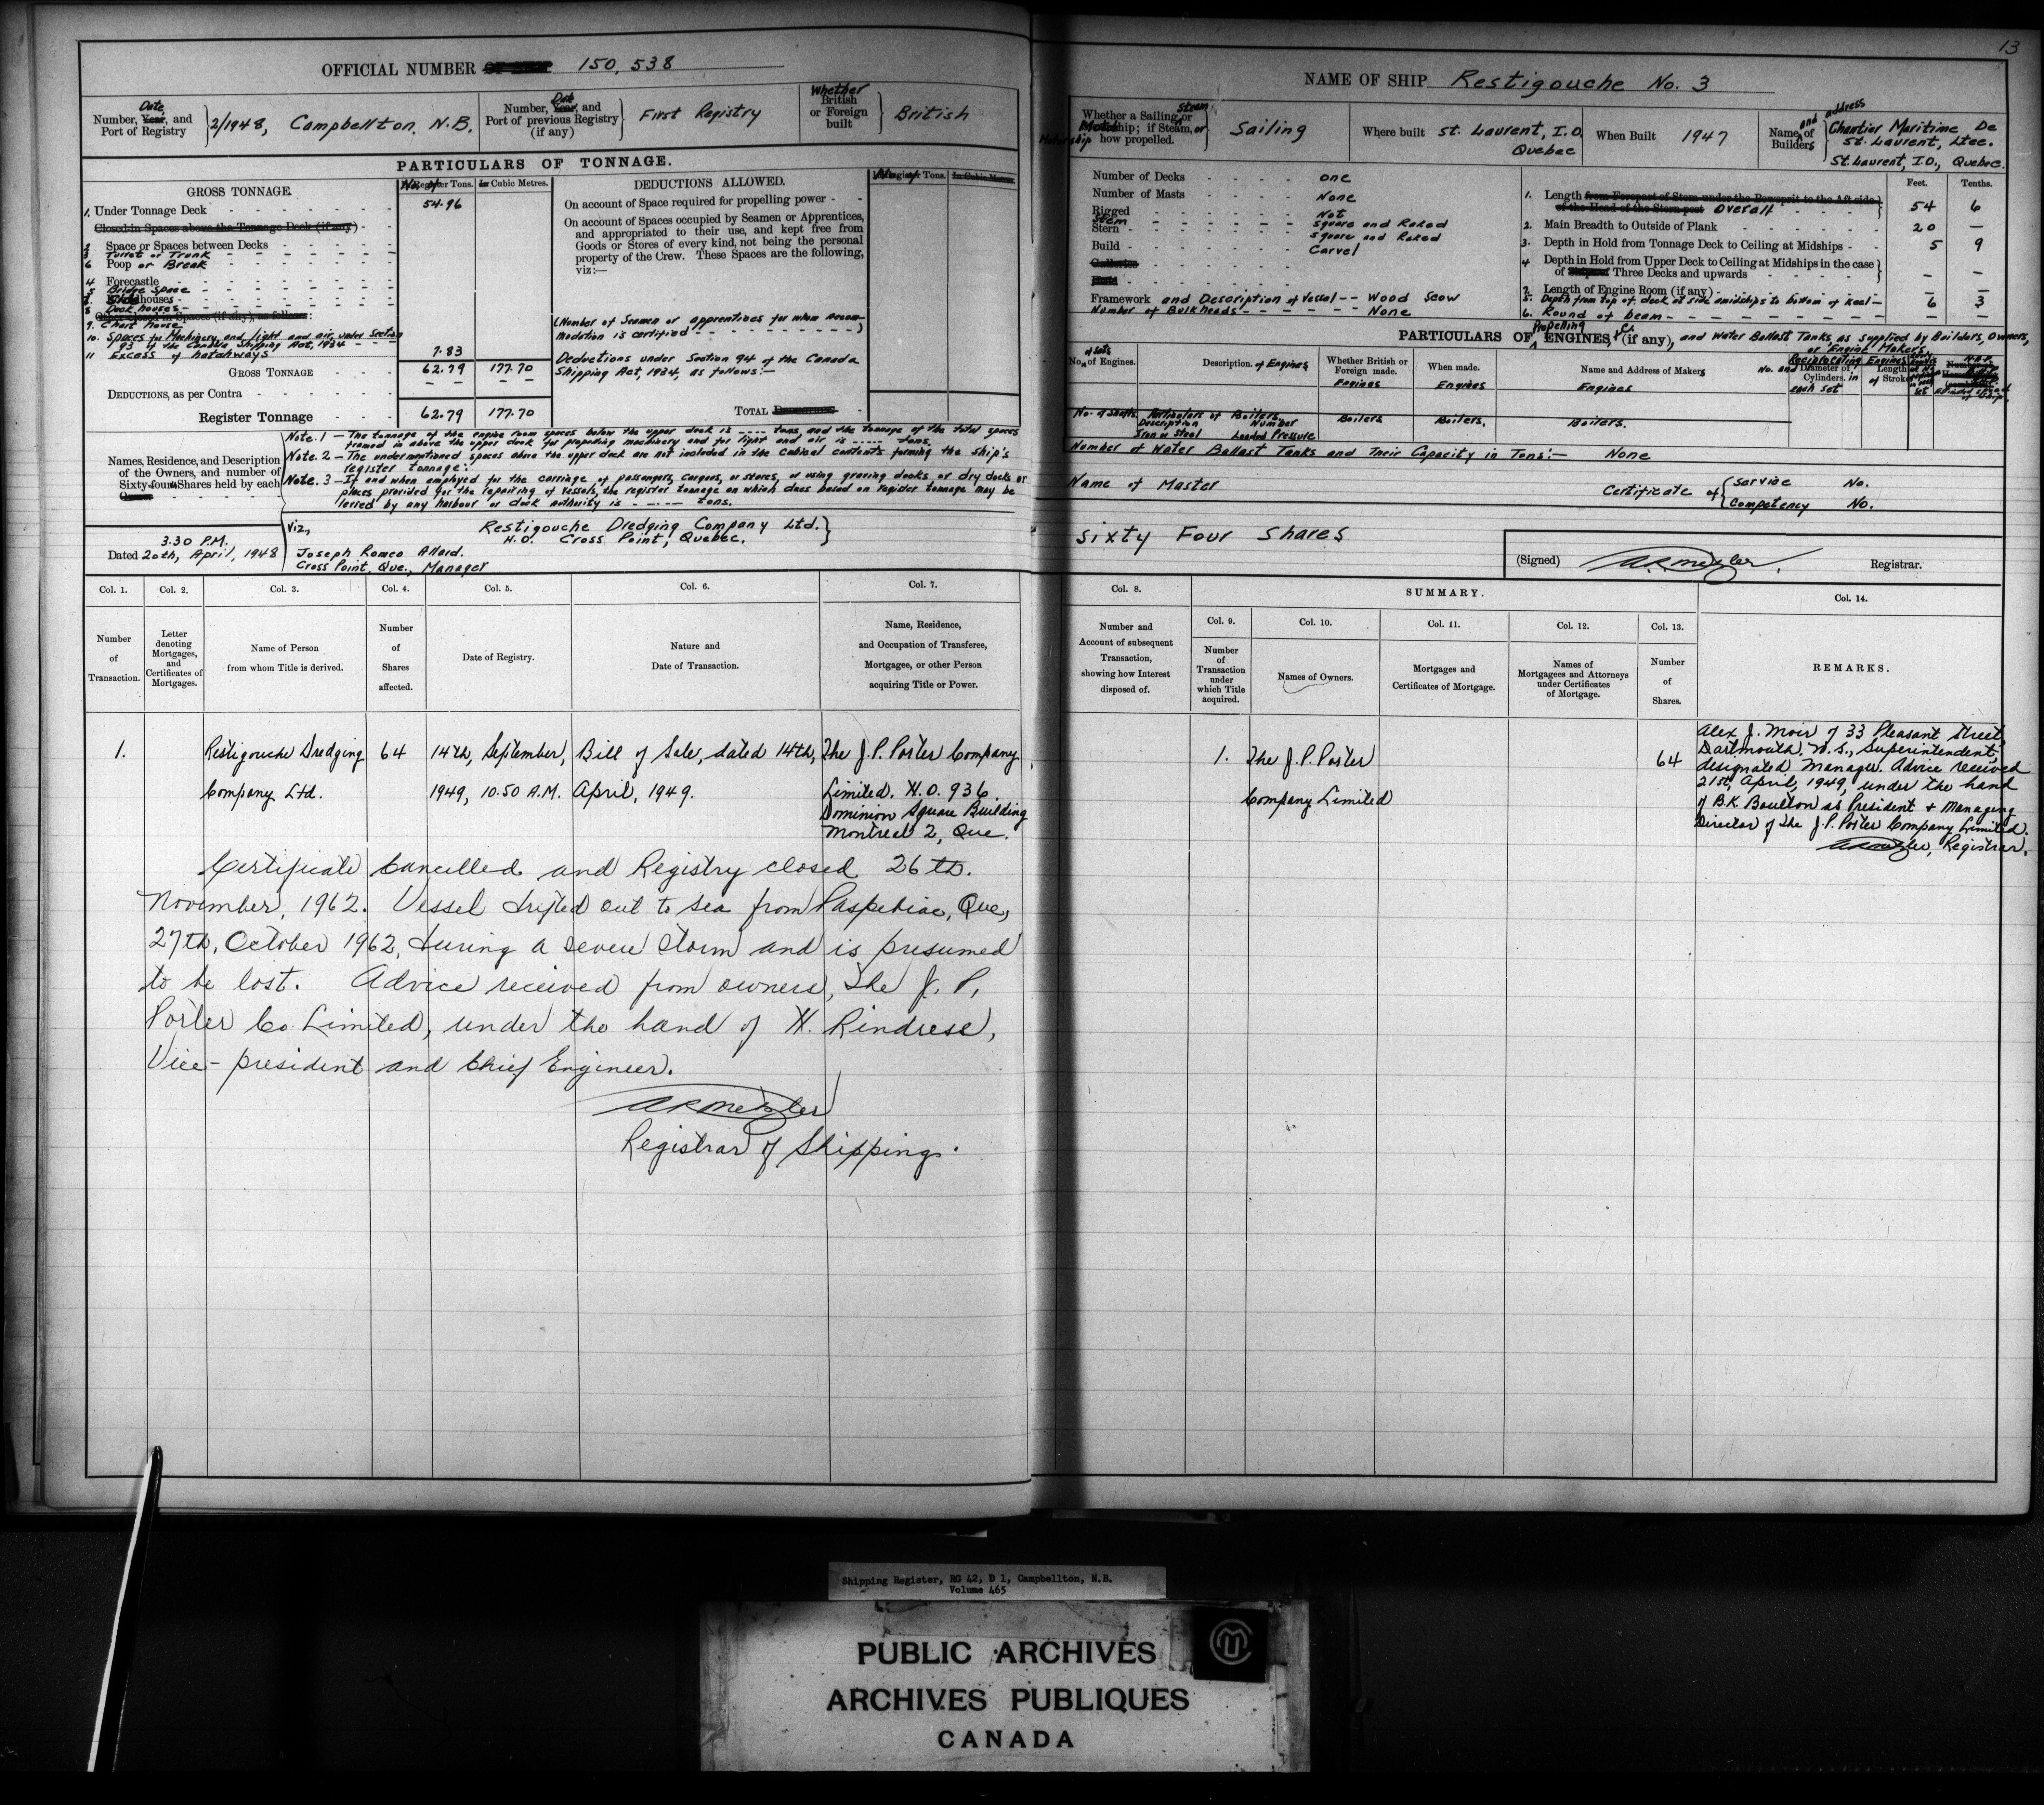 13
OFFICIAL NUMBER 150,538
Date
Number, Year, and
Port of Registry
2/1948, Campbellton, N.B.
Number, Year, and
Port of previous Registry
(if any)
First Registry
Whether
British
or Foreign
built
British
PARTICULARS OF TONNAGE.
GROSS TONNAGE.
No. of Register Tons.
In Cubic Metres.
DEDUCTIONS ALLOWED.
1. Under Tonnage Deck 54.96
Closed-in Spaces above the Tonnage Deck (if any)
Space or Spaces between Decks
3 Turret or Trunk
6 Poop or Break
4 Forecastle
5 Bridge Space
8 Deck houses
Other closed in Spaces (if any), as follows:
9. Chart house
10. Spaces for Machinery, and light and air, under Section
93 of the Canada Shipping Act, 1934
11 Excess of hatchways 7.83
GROSS TONNAGE 62.79 177.70
DEDUCTIONS, as per Contra
Register Tonnage 62.79 177.70
On account of Space required for propelling power
On account of Spaces occupied by Seamen or Apprentices,
and appropriated to their use, and kept free from
Goods or Stores of every kind, not being the personal
property of the Crew. These Spaces are the following,
viz:—
(Number of Seamen or apprentices for whom accom-
modation is certified)
Deductions under Section 94 of the Canada
Shipping Act, 1934, as follows:—
TOTAL
Note. 1 — The tonnage of the engine room spaces below the upper deck is ---- tons, and the tonnage of the total spaces
framed in above the upper deck for propelling machinery and for light and air is ----- tons.
Note. 2 — The undermentioned spaces above the upper deck are not included in the cubical contents forming the ship's
register tonnage:
Note. 3 — If and when employed for the carriage of passengers, cargoes, or stores, or using graving docks, or dry docks or
places provided for the repairing of vessels, the register tonnage on which dues based on register tonnage may be
levied by any harbour or dock authority is ----- tons.
Names, Residence, and Description
of the Owners, and number of
Sixty-fourth Shares held by each
Viz.,
Restigouche Dredging Company Ltd.
H.O. Cross Point, Quebec.
3.30 P.M.
Dated 20th, April, 1948
Joseph Romeo Allard.
Cross Point, Que., Manager
NAME OF SHIP Restigouche No. 3
Whether a Sailing, Steam or
Motor ship; if Steam, or
Motorship how propelled.
Sailing
Where built St. Laurent, I.O.
Quebec
When Built 1947
Name and address of
Builders
Chantier Maritime De
St. Laurent, Ltee.
St. Laurent, I.O., Quebec.
Number of Decks one
Number of Masts None
Rigged Not
Stem square and Raked
Stern square and Raked
Build Carvel
Galleries
Head
Framework and Description of Vessel -- Wood Scow
Number of Bulkheads None
Feet. Tenths.
1. Length from Forepart of Stem under the Bowsprit to the Aft side
of the Head of the Stern post Overall 54 6
2. Main Breadth to Outside of Plank 20 —
3. Depth in Hold from Tonnage Deck to Ceiling at Midships 5 9
4 Depth in Hold from Upper Deck to Ceiling at Midships in the case
of Three Decks and upwards — —
7. Length of Engine Room (if any) — —
5. Depth from top of deck at side amidships to bottom of keel 6 3
6. Round of beam — —
PARTICULARS OF Propelling ENGINES, &c. (if any), and Water Ballast Tanks as supplied by Builders, Owners,
or Engine Makers
No. of sets of Engines.
Description of Engines
Whether British or
Foreign made.
Engines
When made.
Engines
Name and Address of Makers
Engines
Reciprocating Engines
No. and Diameter of
Cylinders in
each set
Length
of Stroke
No. of Shafts.
Particulars of Boilers
Description Number
Iron or Steel Loaded Pressure
Boilers
Boilers.
Boilers.
Number of Water Ballast Tanks and Their Capacity in Tons:— None
Name of Master
Certificate of
Service No.
Competency No.
Sixty Four Shares
(Signed) Registrar.
Col. 1.
Number
of
Transaction.
Col. 2.
Letter
denoting
Mortgages,
and
Certificates of
Mortgages.
Col. 3.
Name of Person
from whom Title is derived.
Col. 4.
Number
of
Shares
affected.
Col. 5.
Date of Registry.
Col. 6.
Nature and
Date of Transaction.
Col. 7.
Name, Residence,
and Occupation of Transferee,
Mortgagee, or other Person
acquiring Title or Power.
Col. 8.
Number and
Account of subsequent
Transaction,
showing how Interest
disposed of.
SUMMARY.
Col. 9.
Number
of
Transaction
under
which Title
acquired.
Col. 10.
Names of Owners.
Col. 11.
Mortgages and
Certificates of Mortgage.
Col. 12.
Names of
Mortgagees and Attorneys
under Certificates
of Mortgage.
Col. 13.
Number
of
Shares.
Col. 14.
REMARKS.
1.
Restigouche Dredging
Company Ltd.
64
14th, September,
1949, 10.50 A.M.
Bill of Sale, dated 14th,
April, 1949.
The J.P. Porter Company
Limited. H.O. 936
Dominion Square Building
Montreal 2, Que.
1.
The J.P. Porter
Company Limited
64
Alex J. Moir of 33 Pleasant Street
Dartmouth, N.S., Superintendent,
designated Manager. Advice received
21st, April, 1949, under the hand
of B.K. Boulton as President & Managing
Director of The J.P. Porter Company Limited.
Registrar.
Certificate Cancelled and Registry closed 26th.
November, 1962. Vessel drifted out to sea from Paspebiac, Que,
27th, October 1962, during a severe storm and is presumed
to be lost. Advice received from owners, The J. P.
Porter Co Limited, under the hand of H. Rindress,
Vice-president and Chief Engineer.
Registrar of Shipping.
Shipping Register, RG 42, D 1, Campbellton, N.B.
Volume 465
PUBLIC ARCHIVES
ARCHIVES PUBLIQUES
CANADA